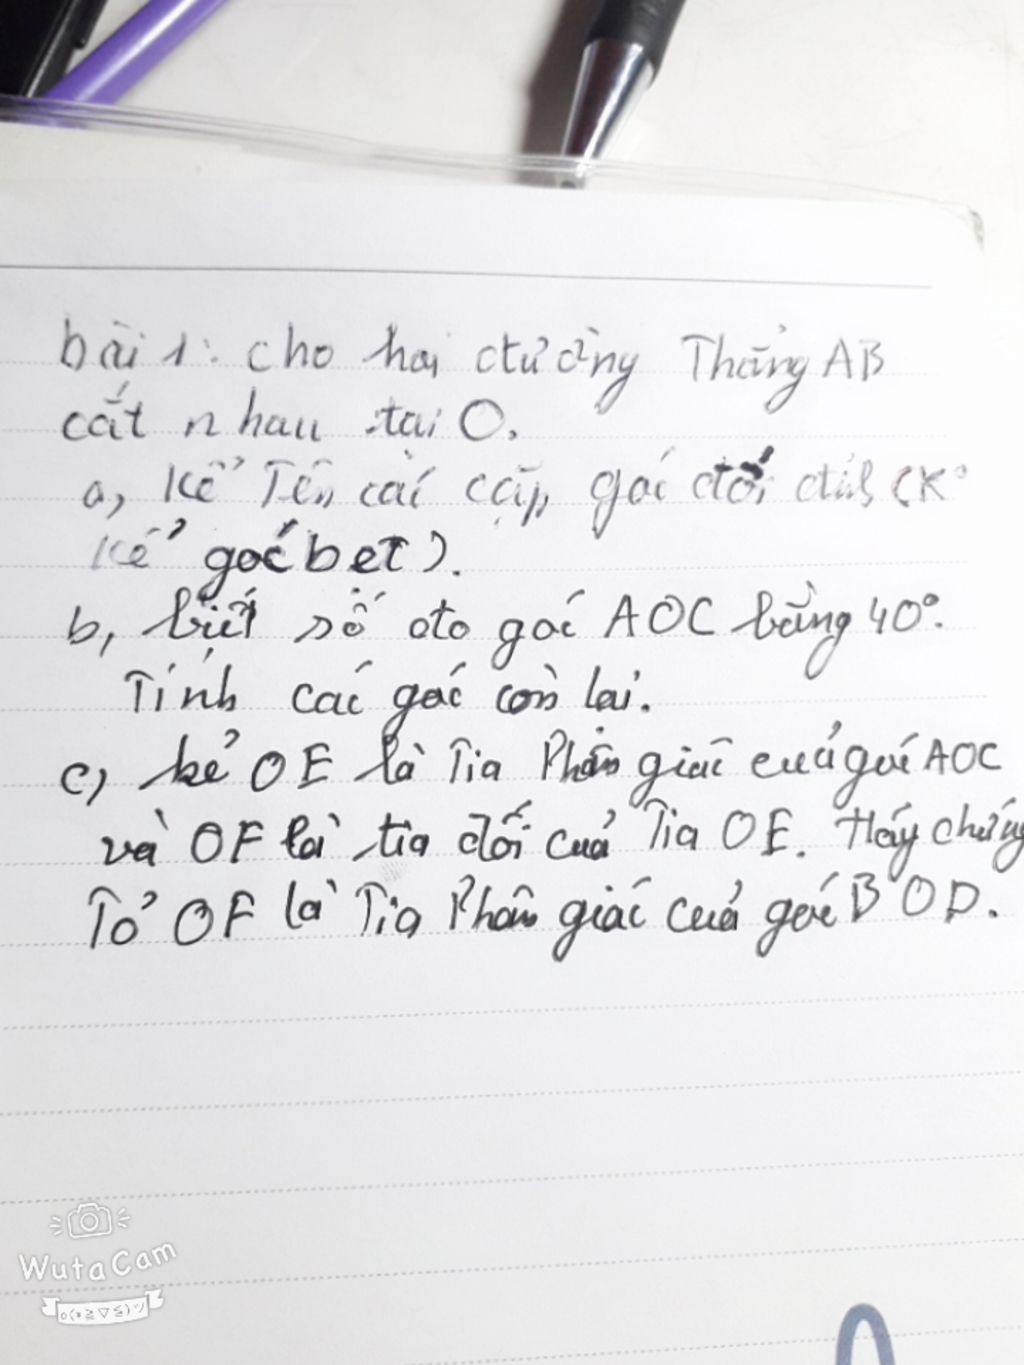 bài 1: cho hai đường Thẳng AB
cắt nhau tại O.
a, Kể Tên các cặp góc đối đỉnh (K°
Kể góc bet).
b, biết số đo góc AOC bằng 40°.
Tính các góc còn lại.
c, kẻ OE là Tia Phân giác cuả góc AOC
và OF là tia đối cuả Tia OE. Hãy chứng
Tỏ OF là Tia Phân giác cuả góc BOD.
WutaCam